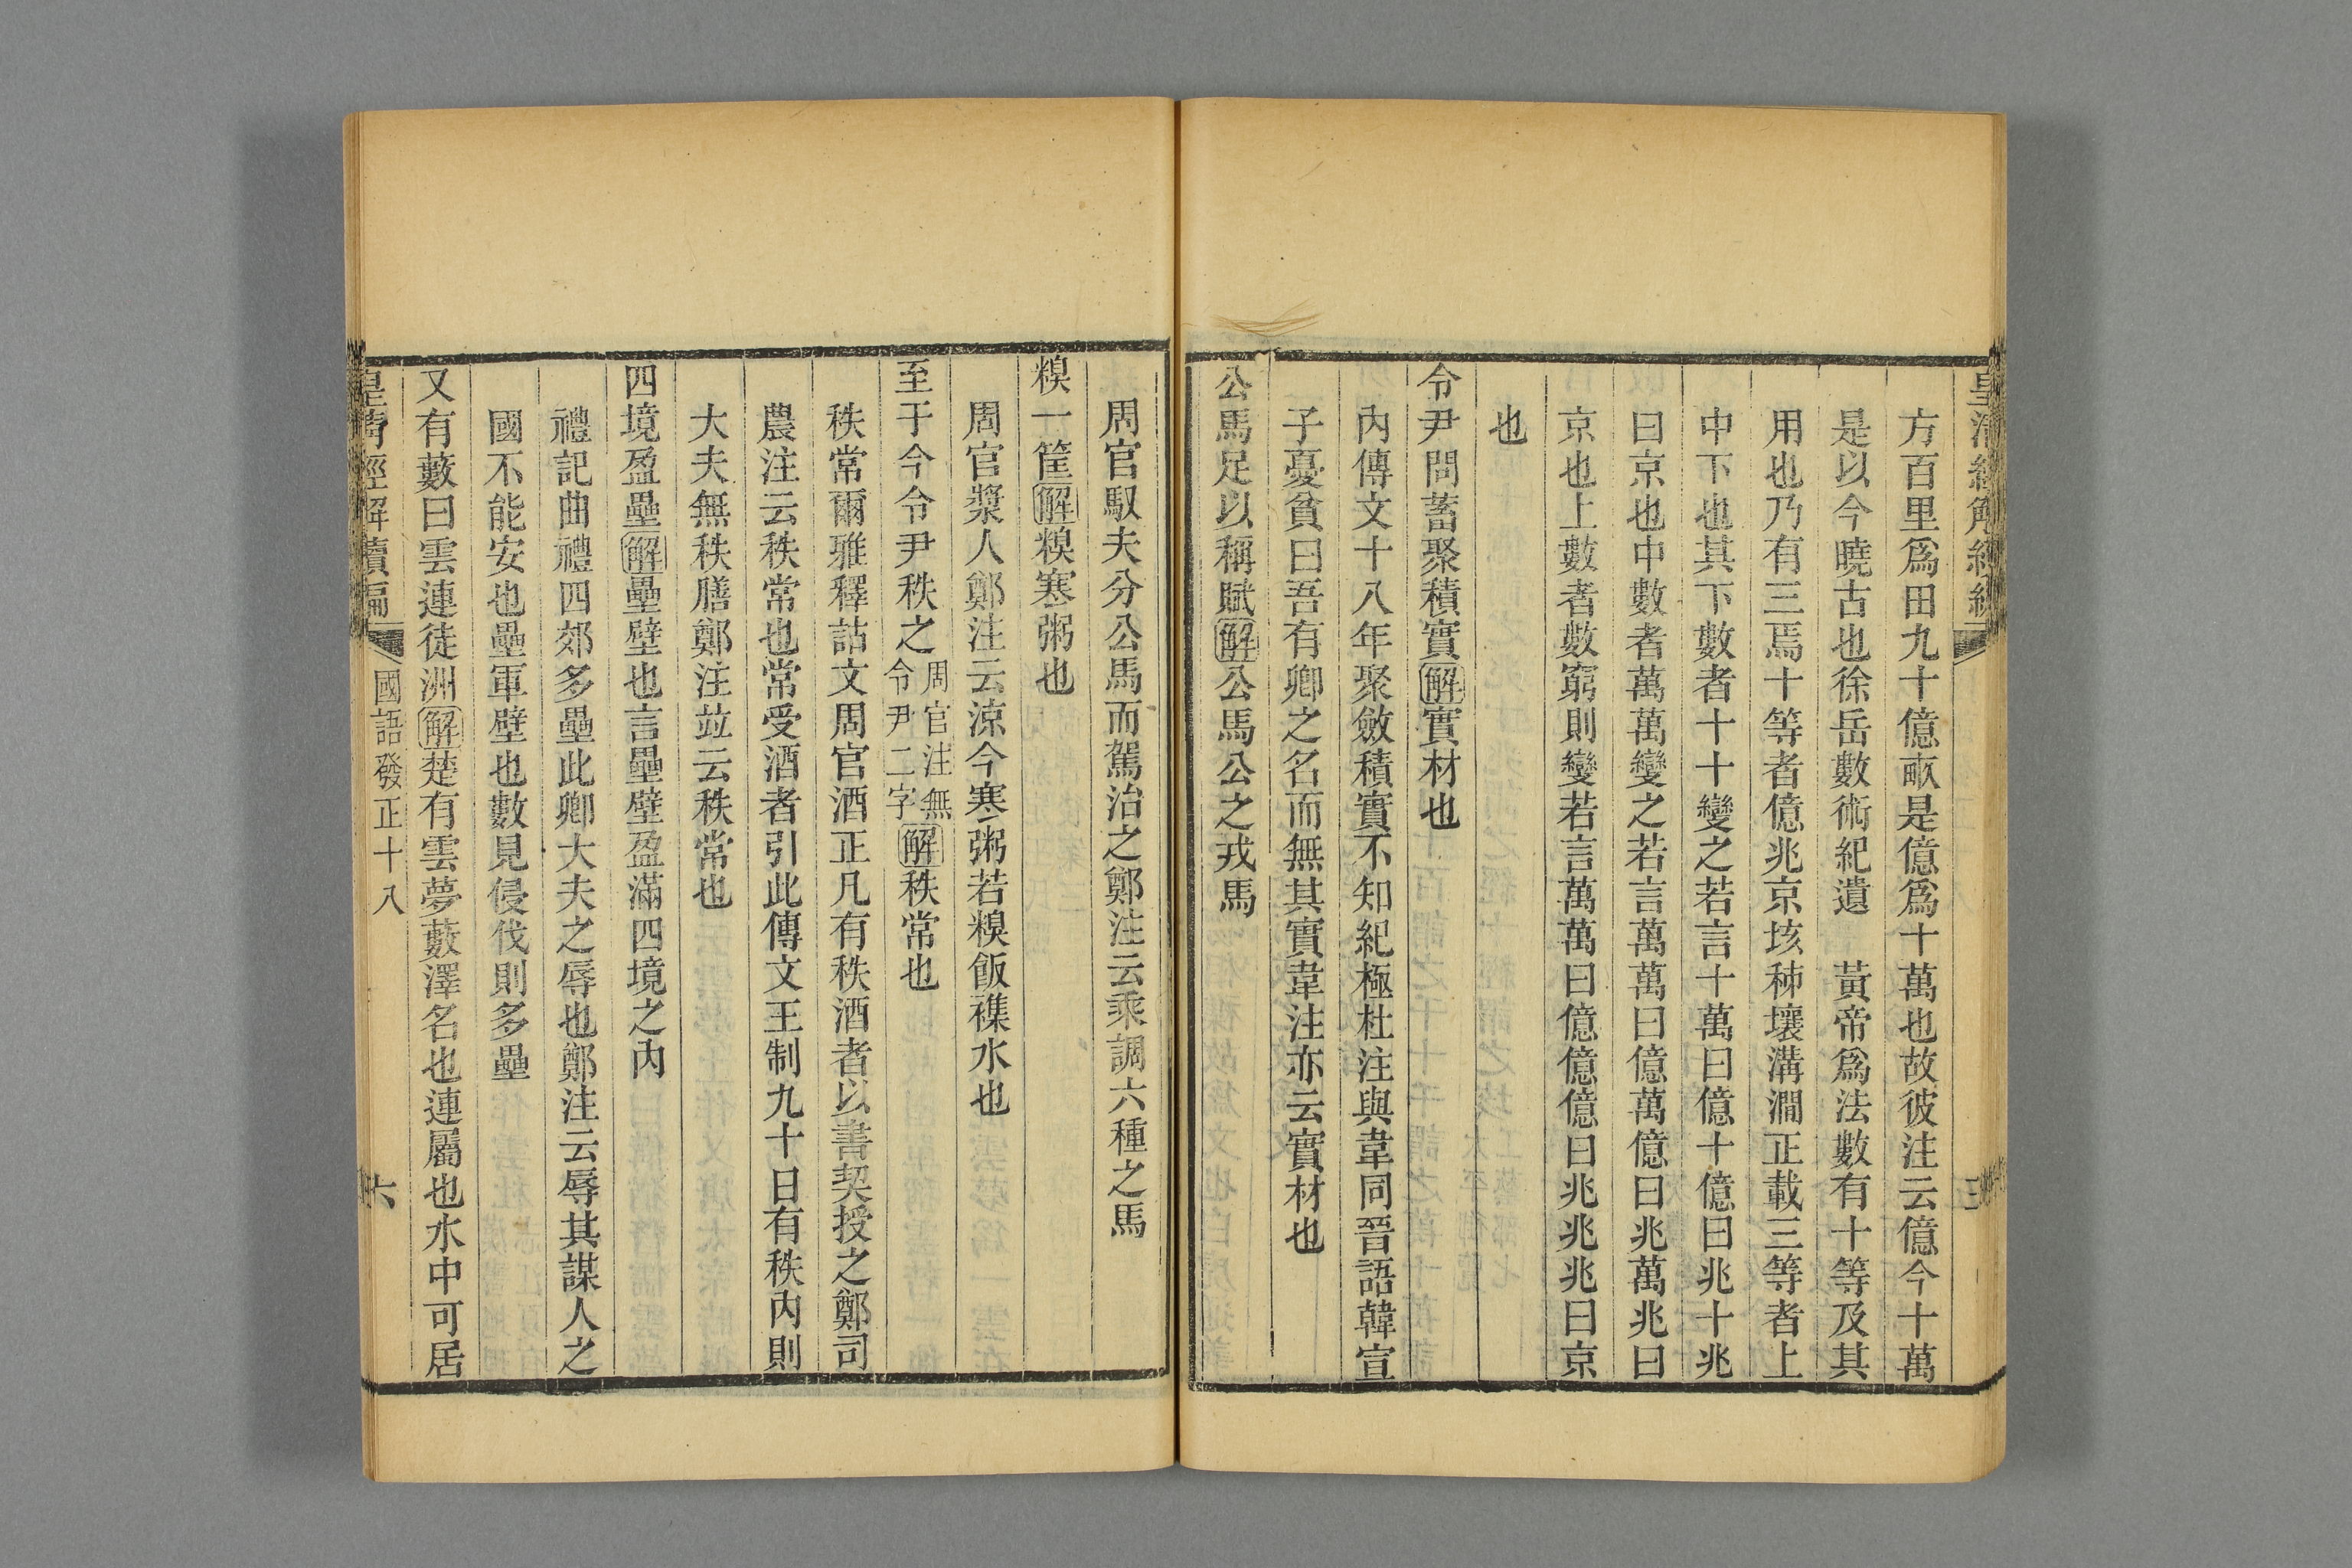 方百里爲田九十億畞是億爲十萬也故彼注云億今十萬
是以今曉古也徐岳數術紀遺　黃帝爲法數有十等及其
用也乃有三焉十等者億兆京垓秭壤溝澗正載三等者上
中下也其下數者十十變之若言十萬曰億十億曰兆十兆
曰京也中數者萬萬變之若言萬萬曰億萬億曰兆萬兆曰
京也上數者數窮則變若言萬萬曰億億億曰兆兆兆曰京
也
令尹問蓄聚積實解實材也
內傳文十八年聚斂積實不知紀極杜注與韋同晉語韓宣
子憂貧曰吾有卿之名而無其實韋注亦云實材也
公馬足以稱賦解公馬公之戎馬
周官馭夫分公馬而駕治之鄭注云乘調六種之馬
糗一筐解糗寒粥也
周官漿人鄭注云涼今寒粥若糗飯襍水也
至于今令尹秩之周官注無令尹二字解秩常也
秩常爾雅釋詁文周官酒正凡有秩酒者以書契授之鄭司
農注云秩常也常受酒者引此傳文王制九十日有秩內則
大夫無秩膳鄭注竝云秩常也
四境盈壘解壘壁也言壘壁盈滿四境之內
禮記曲禮四郊多壘此卿大夫之辱也鄭注云辱其謀人之
國不能安也壘軍壁也數見侵伐則多壘
又有藪曰雲連徒洲解楚有雲夢藪澤名也連屬也水中可居
皇清經解續編　國語發正十八　六